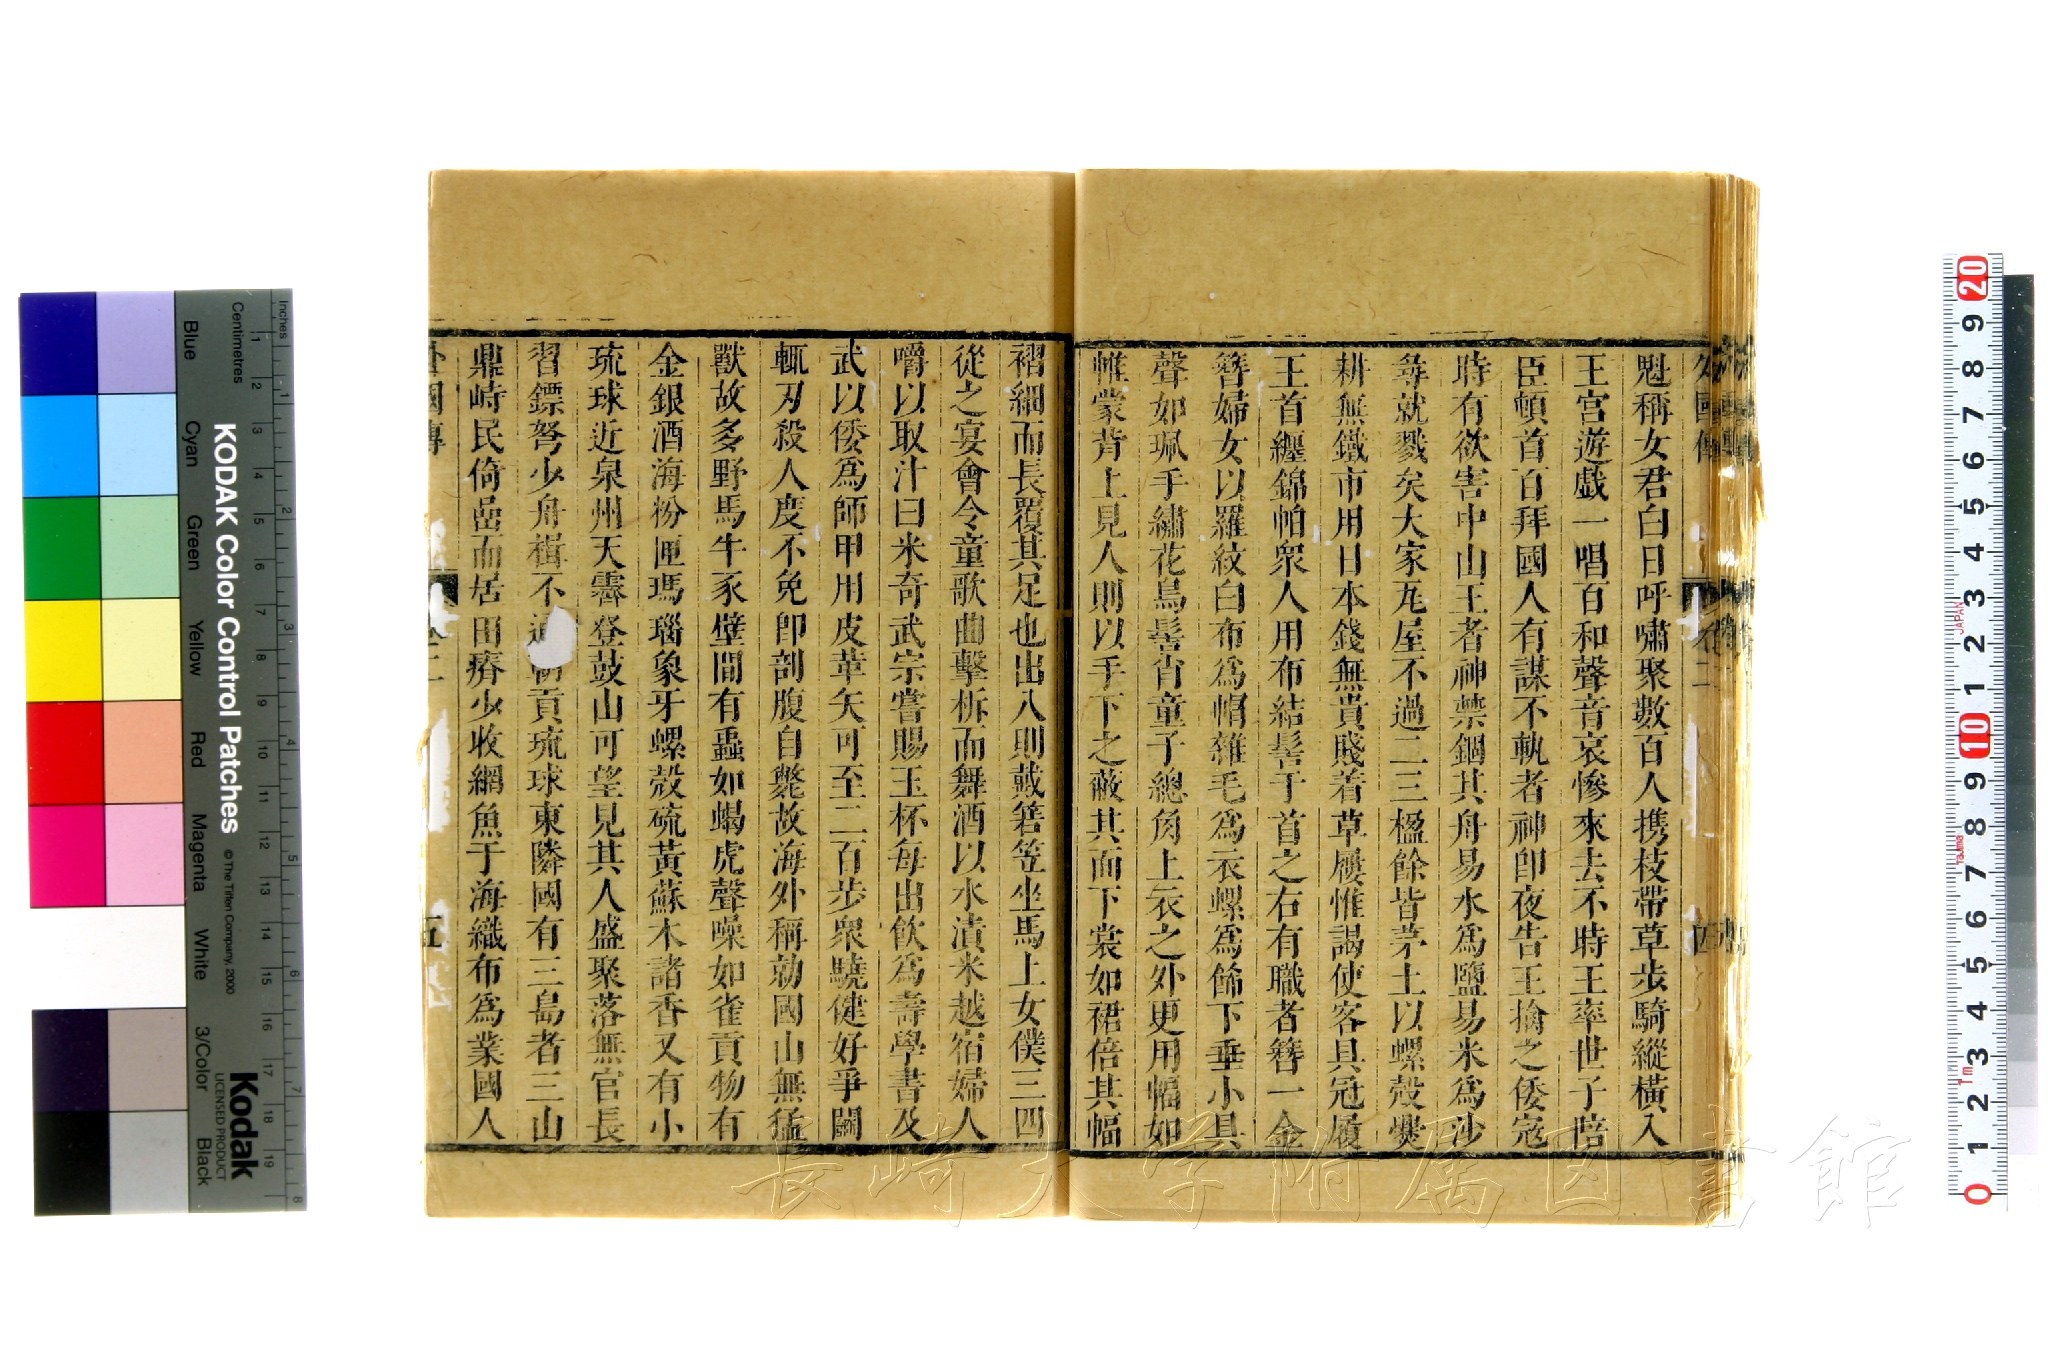 外國傳
卷二
四
魁稱女君白日呼嘯聚數百人携枝帶草步騎縱橫入
王宮遊戲一唱百和聲音哀慘來去不時王率世子陪
臣頓首百拜國人有謀不軌者神卽夜告王擒之倭寇
時有欲害中山王者神禁錮其舟易水爲鹽易米爲沙
尋就戮矣大家瓦屋不過二三楹餘皆茅土以螺殼爨
耕無鐵市用日本錢無貴賤着草屨惟謁使客具冠履
王首纏錦帕衆人用布結髻于首之右有職者簪一金
簪婦女以羅紋白布爲帽雜毛爲衣螺爲餙下垂小具
聲如珮手繡花鳥髻肖童子總角上衣之外更用幅如
帷蒙背上見人則以手下之蔽其面下裳如裙倍其幅
褶細而長覆其足也出入則戴箬笠坐馬上女僕三四
從之宴會令童歌曲擊柝而舞酒以水漬米越宿婦人
嚼以取汁曰米奇武宗嘗賜玉杯每出飲爲壽學書及
武以倭爲師甲用皮革矢可至二百步衆驍健好爭鬬
輒刃殺人度不免卽剖腹自斃故海外稱勍國山無猛
獸故多野馬牛豕壁間有蟲如蝎虎聲噪如雀貢物有
金銀酒海粉匣瑪瑙象牙螺殼硫黃蘇木諸香又有小
琉球近泉州天霽登鼓山可望見其人盛聚落無官長
習鏢弩少舟楫不通朝貢琉球東隣國有三島者三山
鼎峙民倚嵒而居田瘠少收網魚于海織布爲業國人
外國傳
卷二
五
KODAK Color Control Patches
© The Tiffen Company, 2000
Kodak
LICENSED PRODUCT
Inches
Centimetres
Blue
Cyan
Green
Yellow
Red
Magenta
White
3/Color
Black
長崎大学附属図書館
JAPAN
Tajima